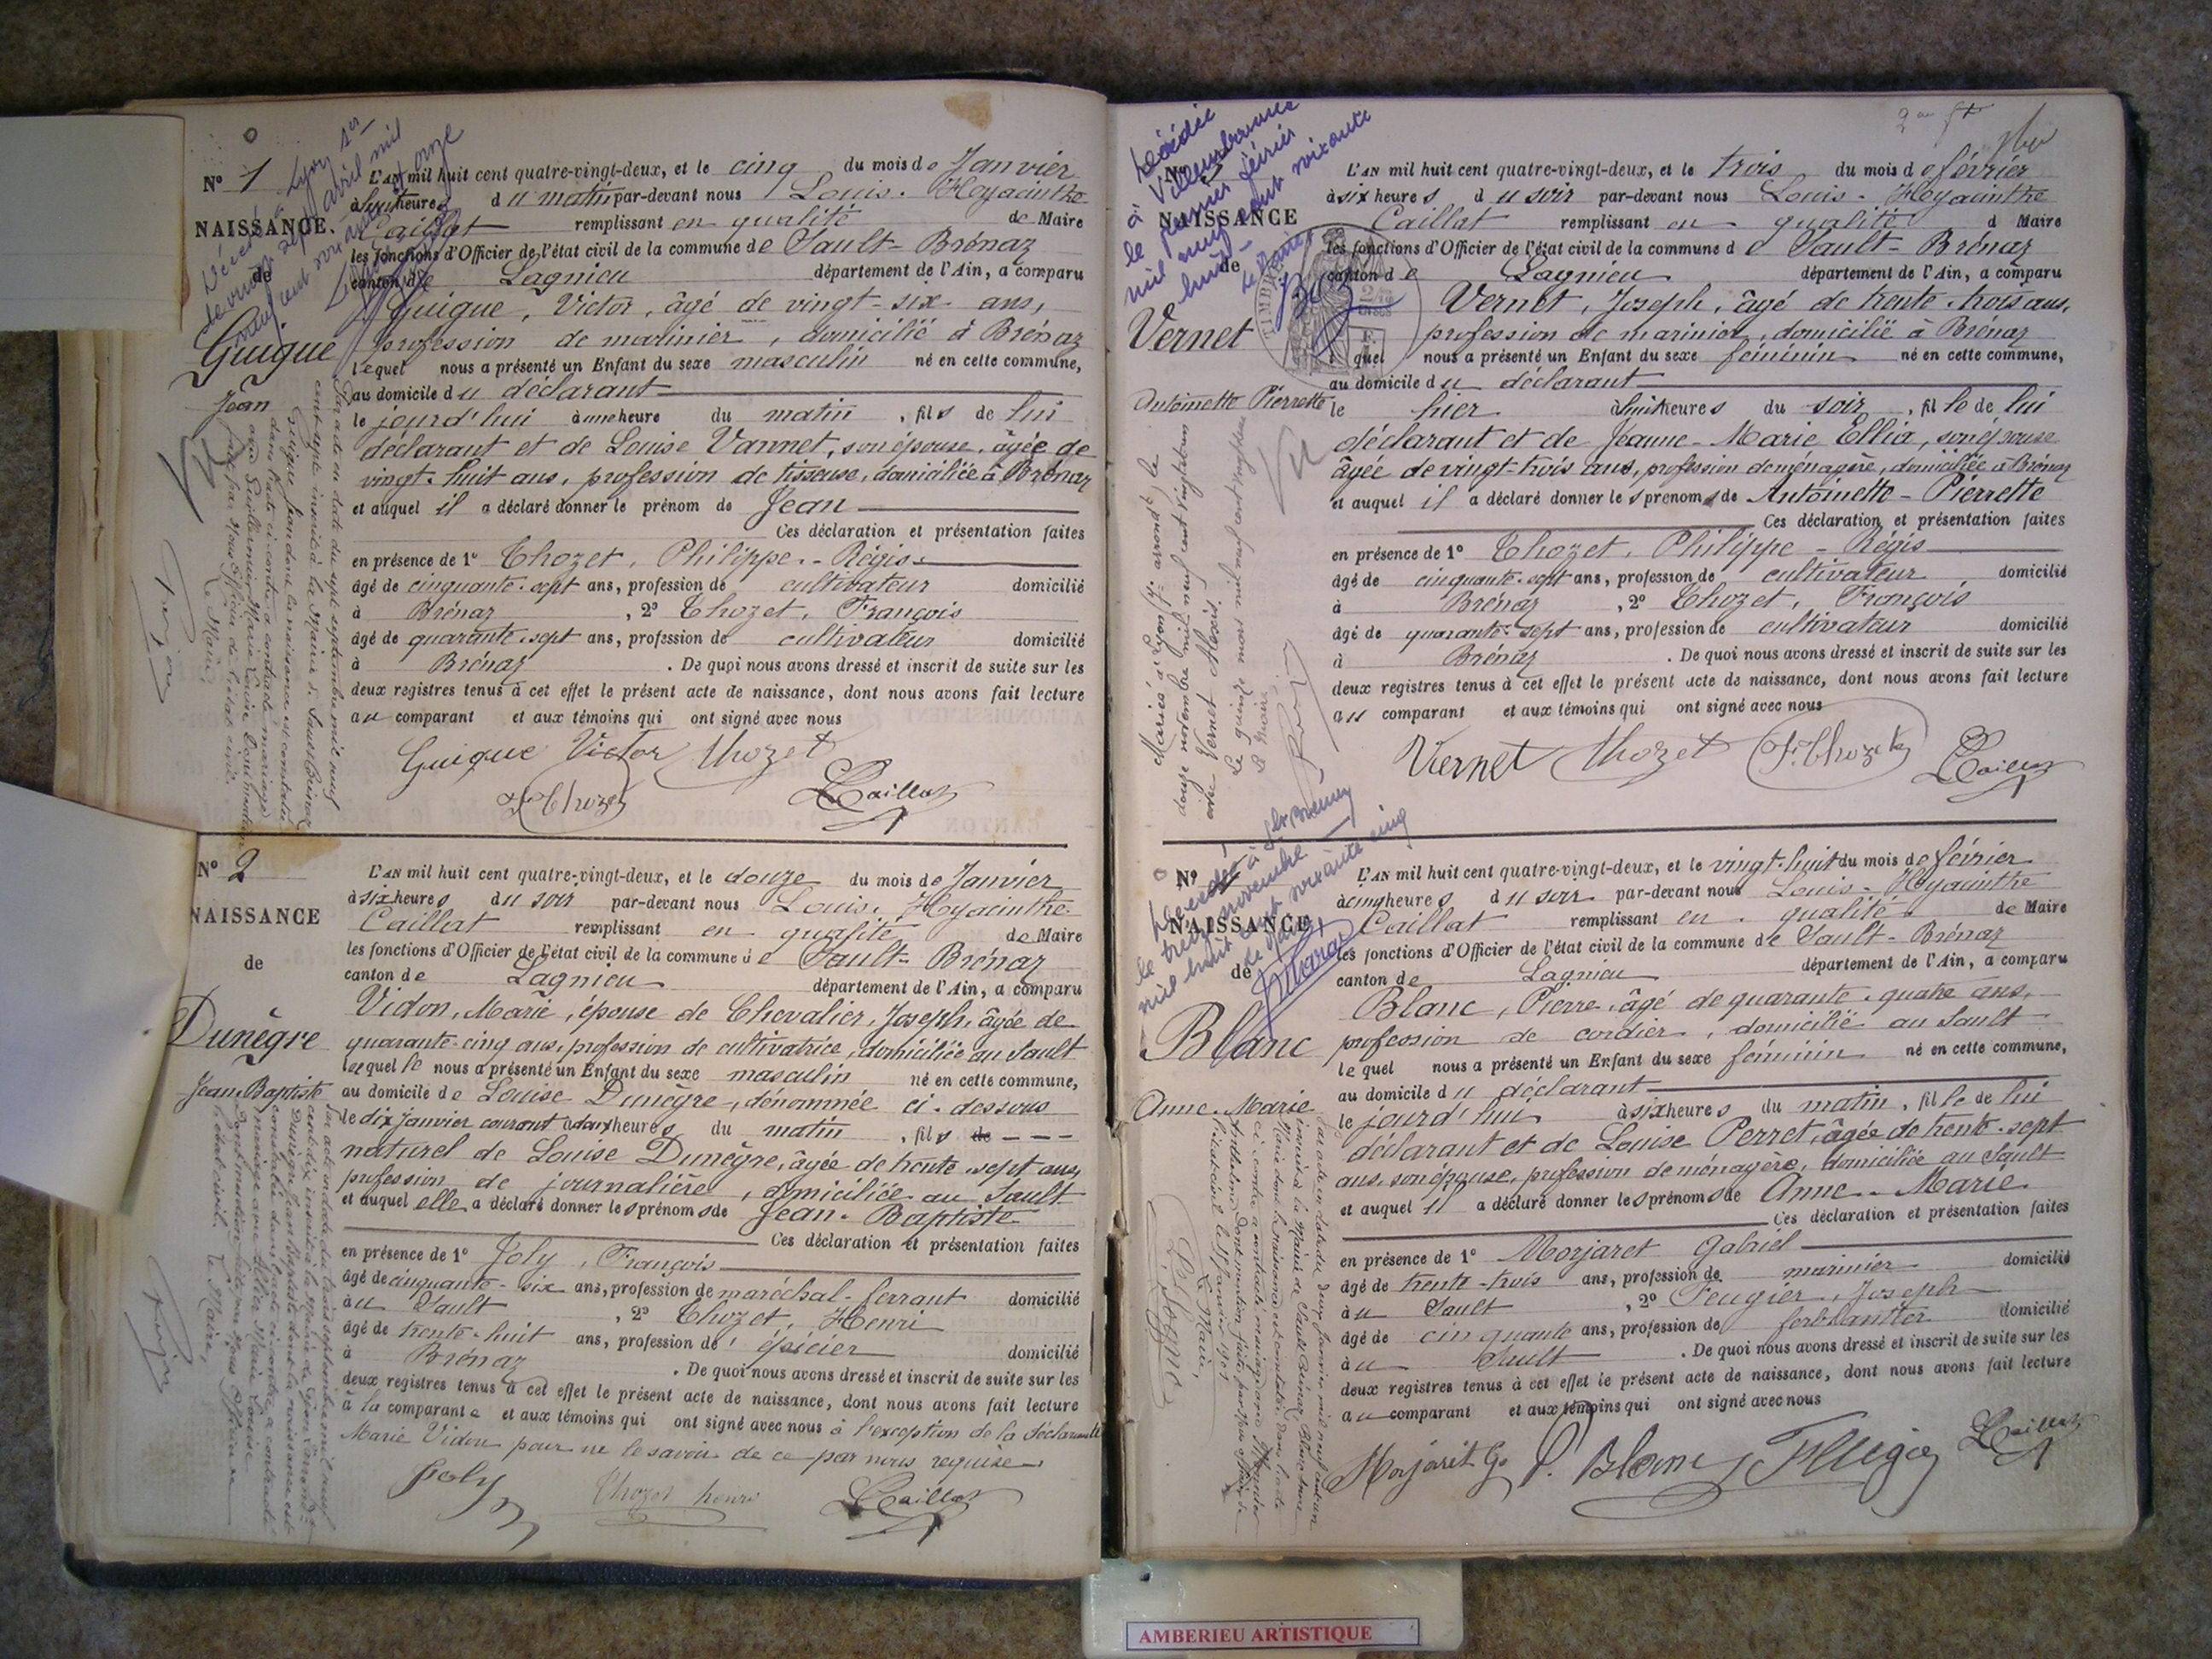 Nº 1
NAISSANCE.
de
Guigue
Jean
Vu
L'AN mil huit cent quatre-vingt-deux, et le cinq du mois de Janvier
à huit heures du matin par-devant nous Louis-Hyacinthe
Caillat remplissant en qualité de Maire
les fonctions d'Officier de l'état civil de la commune de Sault-Brénaz
canton de Lagnieu département de l'Ain, a comparu
Guigue, Victor, âgé de vingt-six ans,
profession de marinier, domicilié à Brénaz
lequel nous a présenté un Enfant du sexe masculin né en cette commune,
au domicile du déclarant
le jourd'hui à une heure du matin, fils de lui
déclarant et de Louise Vannet, son épouse, âgée de
vingt-huit ans, profession de tisseuse, domiciliée à Brénaz
et auquel il a déclaré donner le prénom de Jean
Ces déclaration et présentation faites
en présence de 1º Thozet, Philippe-Régis
âgé de cinquante-sept ans, profession de cultivateur domicilié
à Brénaz, 2º Thozet, François
âgé de quarante-sept ans, profession de cultivateur domicilié
à Brénaz. De quoi nous avons dressé et inscrit de suite sur les
deux registres tenus à cet effet le présent acte de naissance, dont nous avons fait lecture
au comparant et aux témoins qui ont signé avec nous
Guigue Victor Thozet
F. Thozet L. Caillat
Nº 2
NAISSANCE
de
Dunègre
Jean Baptiste
L'AN mil huit cent quatre-vingt-deux, et le douze du mois de Janvier
à six heures du soir par-devant nous Louis-Hyacinthe
Caillat remplissant en qualité de Maire
les fonctions d'Officier de l'état civil de la commune de Sault-Brénaz
canton de Lagnieu département de l'Ain, a comparu
Vidon, Marie, épouse de Chevalier, Joseph, âgée de
quarante-cinq ans, profession de cultivatrice, domiciliée au Sault
laquelle nous a présenté un Enfant du sexe masculin né en cette commune,
au domicile de Louise Dunègre, dénommée ci-dessous
le dix Janvier courant à deux heures du matin, fils de
naturel de Louise Dunègre, âgée de trente-sept ans,
profession de journalière, domiciliée au Sault
et auquel elle a déclaré donner les prénoms de Jean-Baptiste
Ces déclaration et présentation faites
en présence de 1º Joly, François
âgé de cinquante-six ans, profession de maréchal-ferrant domicilié
au Sault, 2º Thozet, Henri
âgé de trente-huit ans, profession d'épicier domicilié
à Brénaz. De quoi nous avons dressé et inscrit de suite sur les
deux registres tenus à cet effet le présent acte de naissance, dont nous avons fait lecture
à la comparante et aux témoins qui ont signé avec nous à l'exception de la déclarante
Marie Vidon pour ne le savoir de ce par nous requise
Joly Thozet henri L. Caillat
Décédée
à Villeurbanne
le premier février
mil neuf cent soixante
huit
le Maire
NAISSANCE
de
Vernet
Antoinette Pierrette
Vu
Mariée à Lyon
douze novembre mil neuf cent
avec Vernet Alexis.
L'AN mil huit cent quatre-vingt-deux, et le trois du mois de février
à six heures du soir par-devant nous Louis-Hyacinthe
Caillat remplissant en qualité d Maire
les fonctions d'Officier de l'état civil de la commune de Sault-Brénaz
canton de Lagnieu département de l'Ain, a comparu
Vernet, Joseph, âgé de trente-trois ans,
profession de marinier, domicilié à Brénaz
lequel nous a présenté un Enfant du sexe féminin né en cette commune,
au domicile du déclarant
le hier à huit heures du soir, fille de lui
déclarant et de Jeanne-Marie Ellia, son épouse
âgée de vingt-trois ans, profession de ménagère, domiciliée à Brénaz
et auquel il a déclaré donner les prénoms de Antoinette-Pierrette
Ces déclaration et présentation faites
en présence de 1º Thozet, Philippe-Régis
âgé de cinquante-sept ans, profession de cultivateur domicilié
à Brénaz, 2º Thozet, François
âgé de quarante-sept ans, profession de cultivateur domicilié
à Brénaz. De quoi nous avons dressé et inscrit de suite sur les
deux registres tenus à cet effet le présent acte de naissance, dont nous avons fait lecture
au comparant et aux témoins qui ont signé avec nous
Vernet Thozet F. Thozet L. Caillat
Nº 4
NAISSANCE
de
Blanc
Anne-Marie
L'AN mil huit cent quatre-vingt-deux, et le vingt-huit du mois de février
à cinq heures du soir par-devant nous Louis-Hyacinthe
Caillat remplissant en qualité de Maire
les fonctions d'Officier de l'état civil de la commune de Sault-Brénaz
canton de Lagnieu département de l'Ain, a comparu
Blanc, Pierre, âgé de quarante-quatre ans,
profession de cordier, domicilié au Sault
lequel nous a présenté un Enfant du sexe féminin né en cette commune,
au domicile du déclarant
le jourd'hui à six heures du matin, fille de lui
déclarant et de Louise Perret, âgée de trente-sept
ans, son épouse, profession de ménagère, domiciliée au Sault
et auquel il a déclaré donner les prénoms de Anne-Marie
Ces déclaration et présentation faites
en présence de 1º Morjaret Gabriel
âgé de trente-trois ans, profession de marinier domicilié
au Sault, 2º Feugier, Joseph
âgé de cinquante ans, profession de ferblantier domicilié
au Sault. De quoi nous avons dressé et inscrit de suite sur les
deux registres tenus à cet effet le présent acte de naissance, dont nous avons fait lecture
au comparant et aux témoins qui ont signé avec nous
Morjaret G. P. Blanc L. Caillat
AMBERIEU ARTISTIQUE